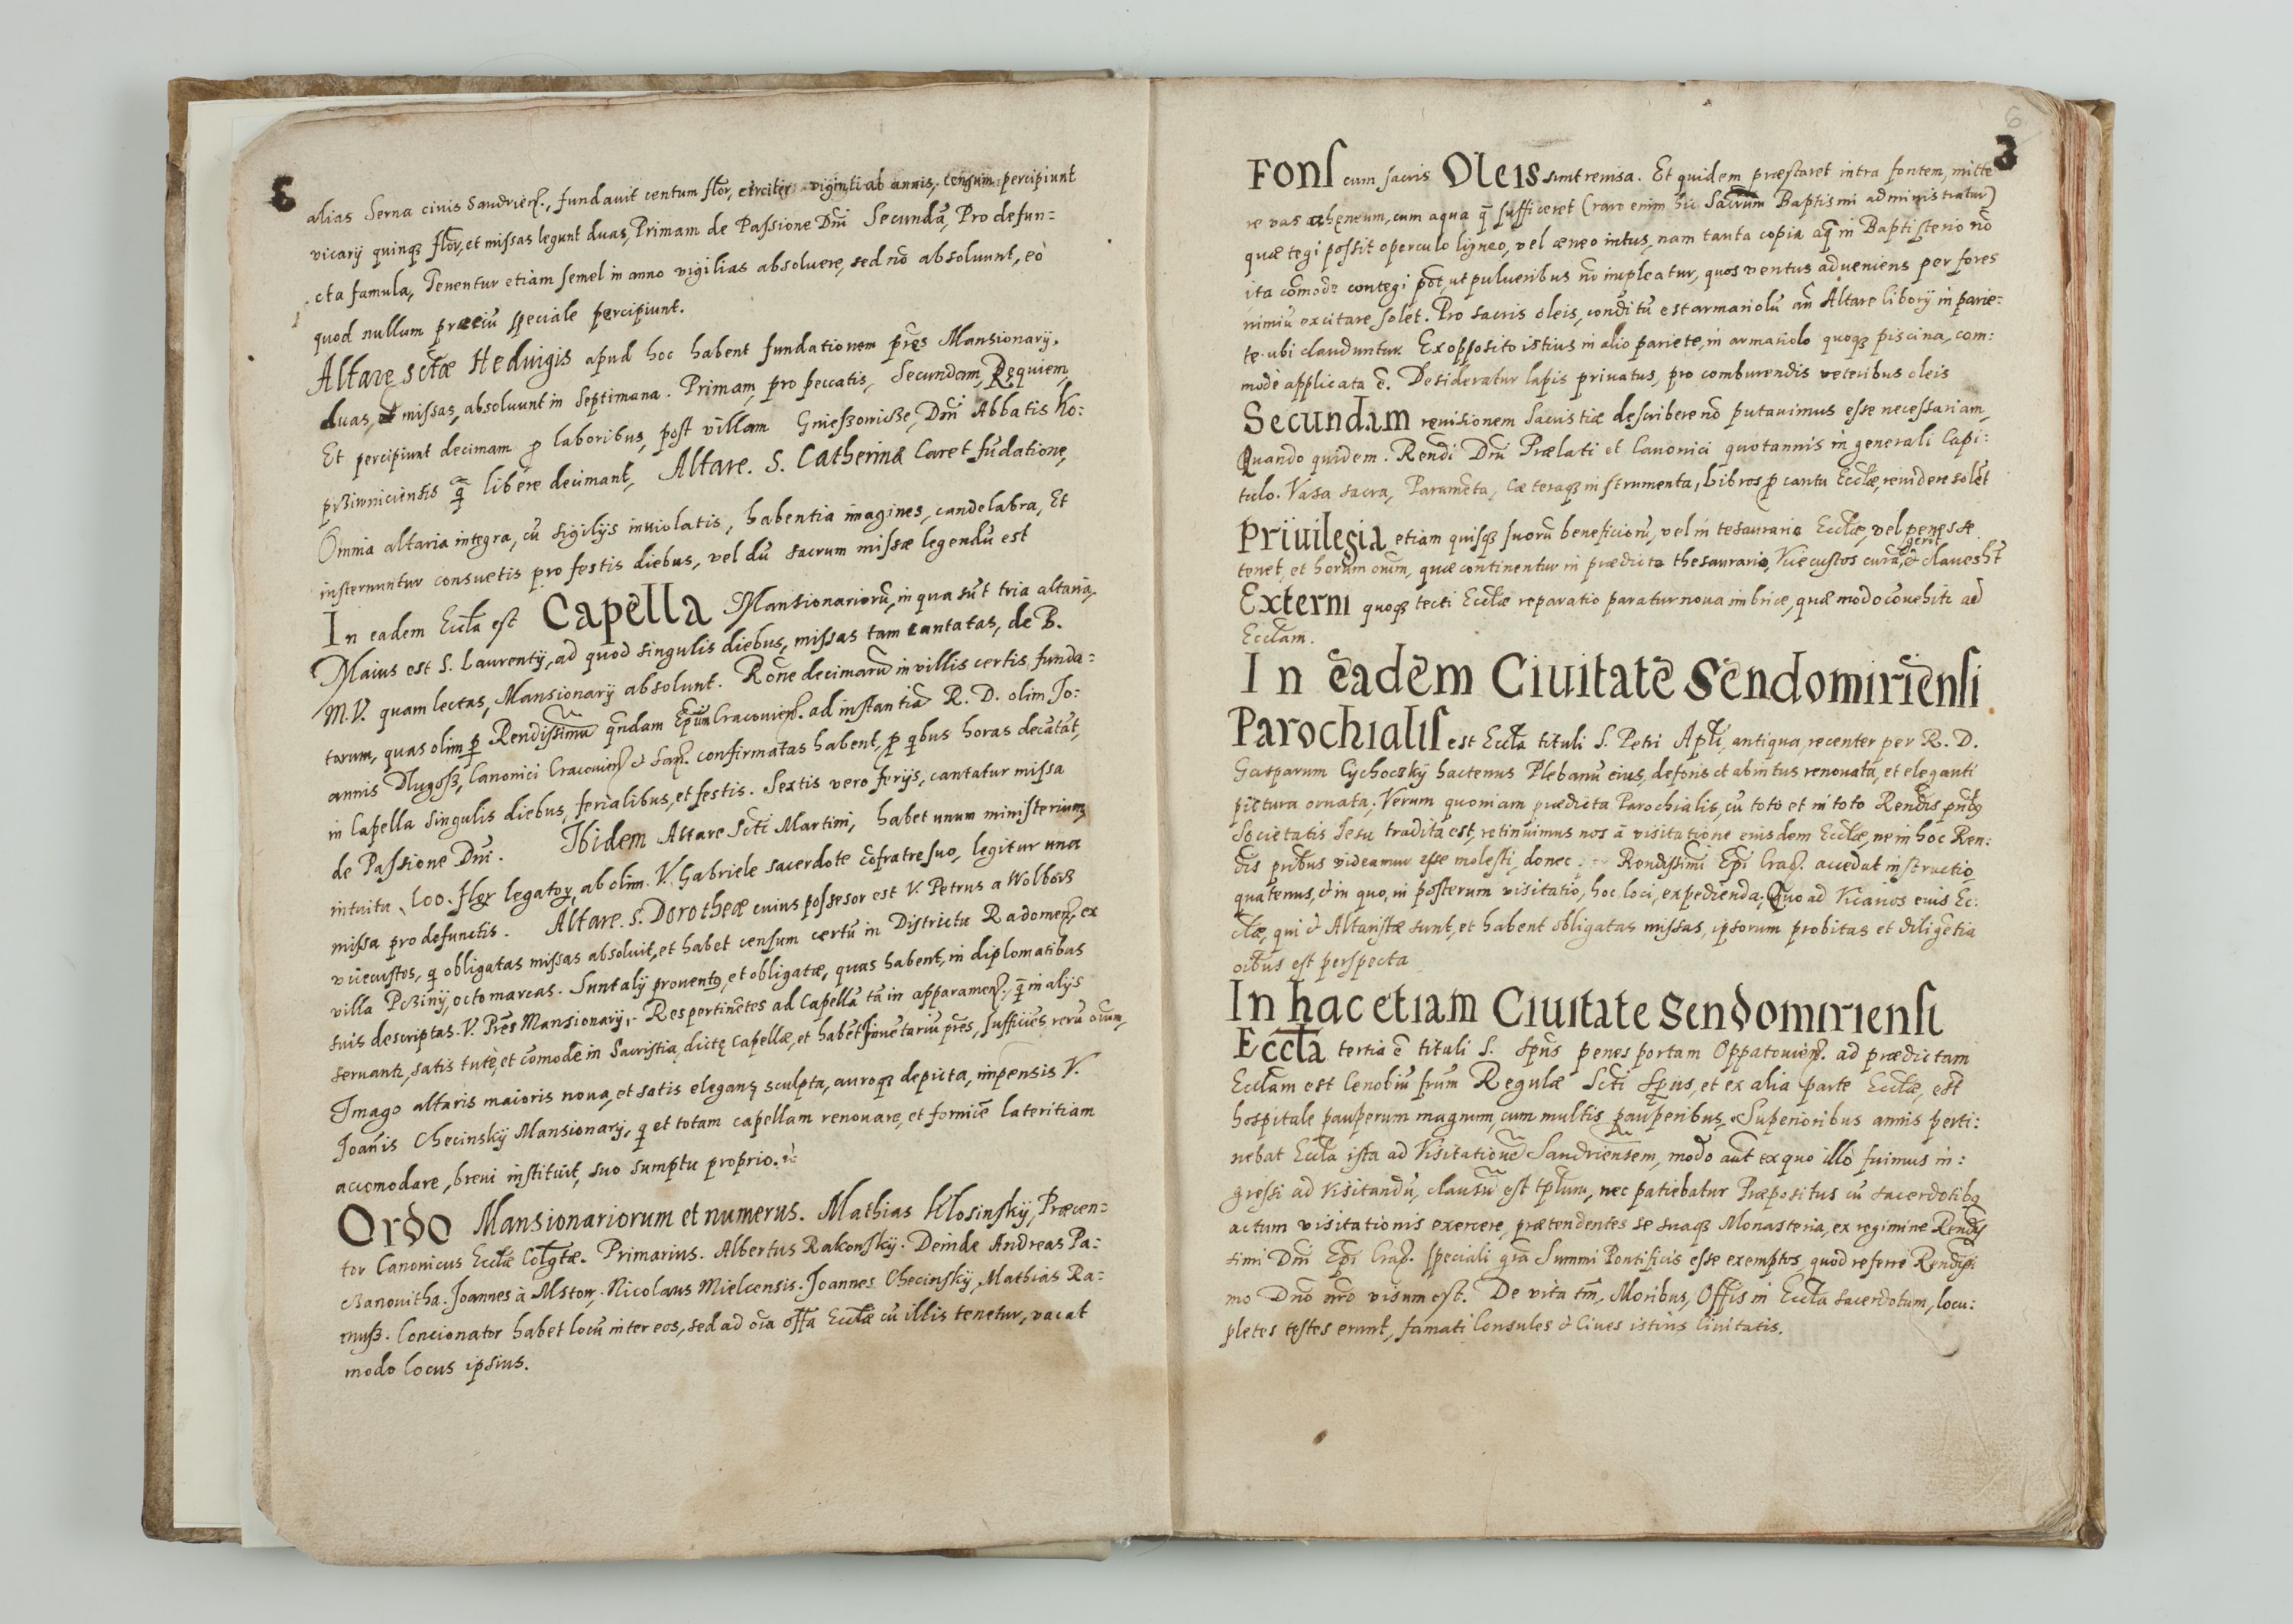 3
alias Serna civis Sandrien., fundavit centum flor, circiter viginti ab annis, censum percipiunt
vicarij quinq3 flor, et missas legunt duas, Primam de Passione Dni Secundā, Pro defun=
cta famula, Tenentur etiam semel in anno vigilias absoluere, sed nō absoluunt, eò
quod nullum preciū speciale percipiunt.
Altare sctæ Heduigis apud hoc habent fundationem pres Mansionarij.
duas, missas, absoluunt in Septimana. Primam, pro peccatis, Secundam, Requiem,
Et percipiunt decimam p laboribus, post villam Gnieszowisze, Dni Abbatis Ko:
przivniciensis q libere decimant, Altare. S. Catherinæ Caret fūdatione,
Omnia altaria integra, cū sigilijs inuiolatis, habentia imagines, candelabra, Et
insternuntur consuetis pro festis diebus, vel dū sacrum missæ legendū est
In eadem Eccla est Capella Mansionariorū, in qua sūt tria altaria,
Maius est S. Laurentij, ad quod singulis diebus, missas tam cantatas, de B.
M.V. quam lectas, Mansionarij absolunt. Rone decimarū in villis certis, funda=
tarum, quas olim p Rendissimū qndam Epum Cracovien. ad instantiā R. D. olim Jo:
annis Dlugosz, Canonici Cracouien & San. confirmatas habent, p qbus horas decātāt,
in Capella singulis diebus, ferialibus, et festis. Sextis vero ferijs, cantatur missa
de Passione Dni. Ibidem Altare Scti Martini, habet unum ministerium,
intuita 100. flor legator, ab olim. V. Gabriele sacerdote cōfratre suo, legitur una
missa pro defunctis. Altare. S. Dorotheæ cuius possesor est V. Petrus a Wolborz
vicecustos, q obligatas missas absoluit, et habet censum certū in Districtu Radomen. ex
villa Pczinij, octo marcas. Sunt alij prouentq, et obligatæ, quas habent, in diplomatibus
suis descriptas. V. Pres Mansionarij,- Res pertinētes ad Capellā tā in apparamen. q in alijs
seruant, satis tutè, et comode in Sacristia, dictę capellæ, et habēt Inuetariū pres, sufficiēs, rerū oium,
Imago altaris maioris noua, et satis elegans sculpta, auroq3 depicta, impensis V.
Joānis Checinskij Mansionarij, q et totam capellam renouare, et fornicē lateritiam
accomodare, breui instituit, suo sumptu proprio.
Ordo Mansionariorum et numerus. Mathias Klosinskij, Præcen=
tor Canonicus Ecclæ Colgtæ. Primarius. Albertus Rakonskij. Deinde Andreas Pa:
czanouitha. Joannes à Mstow, Nicolaus Mielcensis. Joannes Checinskij, Mathias Ra=
musz. Concionator habet locū inter eos, sed ad oia offa Ecclæ cū illis tenetur, vacat
modo locus ipsius.
6
3
Fons cum sacris Oleis sunt reuisa. Et quidem præstaret intra fontem, mitte
re vas aheneum, cum aqua q sufficeret (raro enim hic Sacrum Baptismi administratur)
quæ tegi possit operculo ligneo, vel æneo intus, nam tanta copia aq in Baptisterio nō
ita cōmode contegi pōt, ut pulueribus nō impleatur, quos ventus adueniens per fores
nimiū excitare solet. Pro sacris oleis, conditū est armariolū an Altare liborij in parie=
te. ubi clauduntur. Ex opposito istius in alio pariete, in armariolo quoq3 piscina, com:
mode applicata ē. Desideratur lapis priuatus, pro comburendis veteribus oleis
Secundam reuisionem Sacristiæ describere nō putauimus esse necessariam,
Quando quidem. Rendi Dni Prælati et Canonici quotannis in generali Capi:
tulo. Vasa sacra, Paramēta, Cæteraq3 instrumenta, libros p cantu Ecclæ, reuidere solēt
Priuilegia etiam quisq3 suorū beneficiorū, vel in tesaurario Ecclæ, vel penes se
tenet, et horum omm, quæ continentur in prædicto thesaurario, Vicecustos curā gerit, & claues hēt
Externi quoq3 tecti Ecclæ reparatio paratur noua imbrice, quæ modo cōuehitr ad
Ecclam.
In eadem Ciuitate Sendomiriensi
Parochialis est Eccla tituli S. Petri Apli, antiqua, recenter per R. D.
Gasparum Cychoczkij hactenus Plebanū eius, deforis et abintus renouata, et eleganti
pictura ornata; Verum quoniam prædicta Parochialis, cū toto et in toto Rendis prībq
Societatis Jesu tradita est, retinuimus nos à visitatione eiusdem Ecclæ, ne in hoc Ren:
dis pribus videamur esse molesti, donec Rendissimi Epi Crac. accedat instructio
quatenus, & in quo, in posterum visitatio, hoc loci, expedienda; Quo ad Vicarios eius Ec:
clæ, qui & Altaristæ sunt, et habent obligatas missas, ipsorum probitas et diligētia
oibus est perspecta
In hac etiam Ciuitate Sendomiriensi
Eccla tertia ē tituli S. Spūs penes portam Oppatouien. ad prædictam
Ecclam est Cenobiū frum Regulæ Scti Spūs, et ex alia parte Ecclæ, est
hospitale pauperum magnum, cum multis pauperibus, Superioribus annis perti:
nebat Eccla ista ad Visitationē Sandriensem, modo aut ex quo illò fuimus in:
gressi ad visitandū, clausū est tplum, nec patiebatur Præpositus cū sacerdotibq
actum visitationis exercere, prætendentes se suaq3 Monasteria, ex regimine Rendis
simi Dni Epi Crac. speciali gra Summi Pontificis esse exemptos, quod referre Rendissi
mo Dno nro visum est. De vita tm, Moribus, Offis in Eccla sacerdotum, locu:
pletes testes erunt, famati Consules & Ciues istius Ciuitatis.